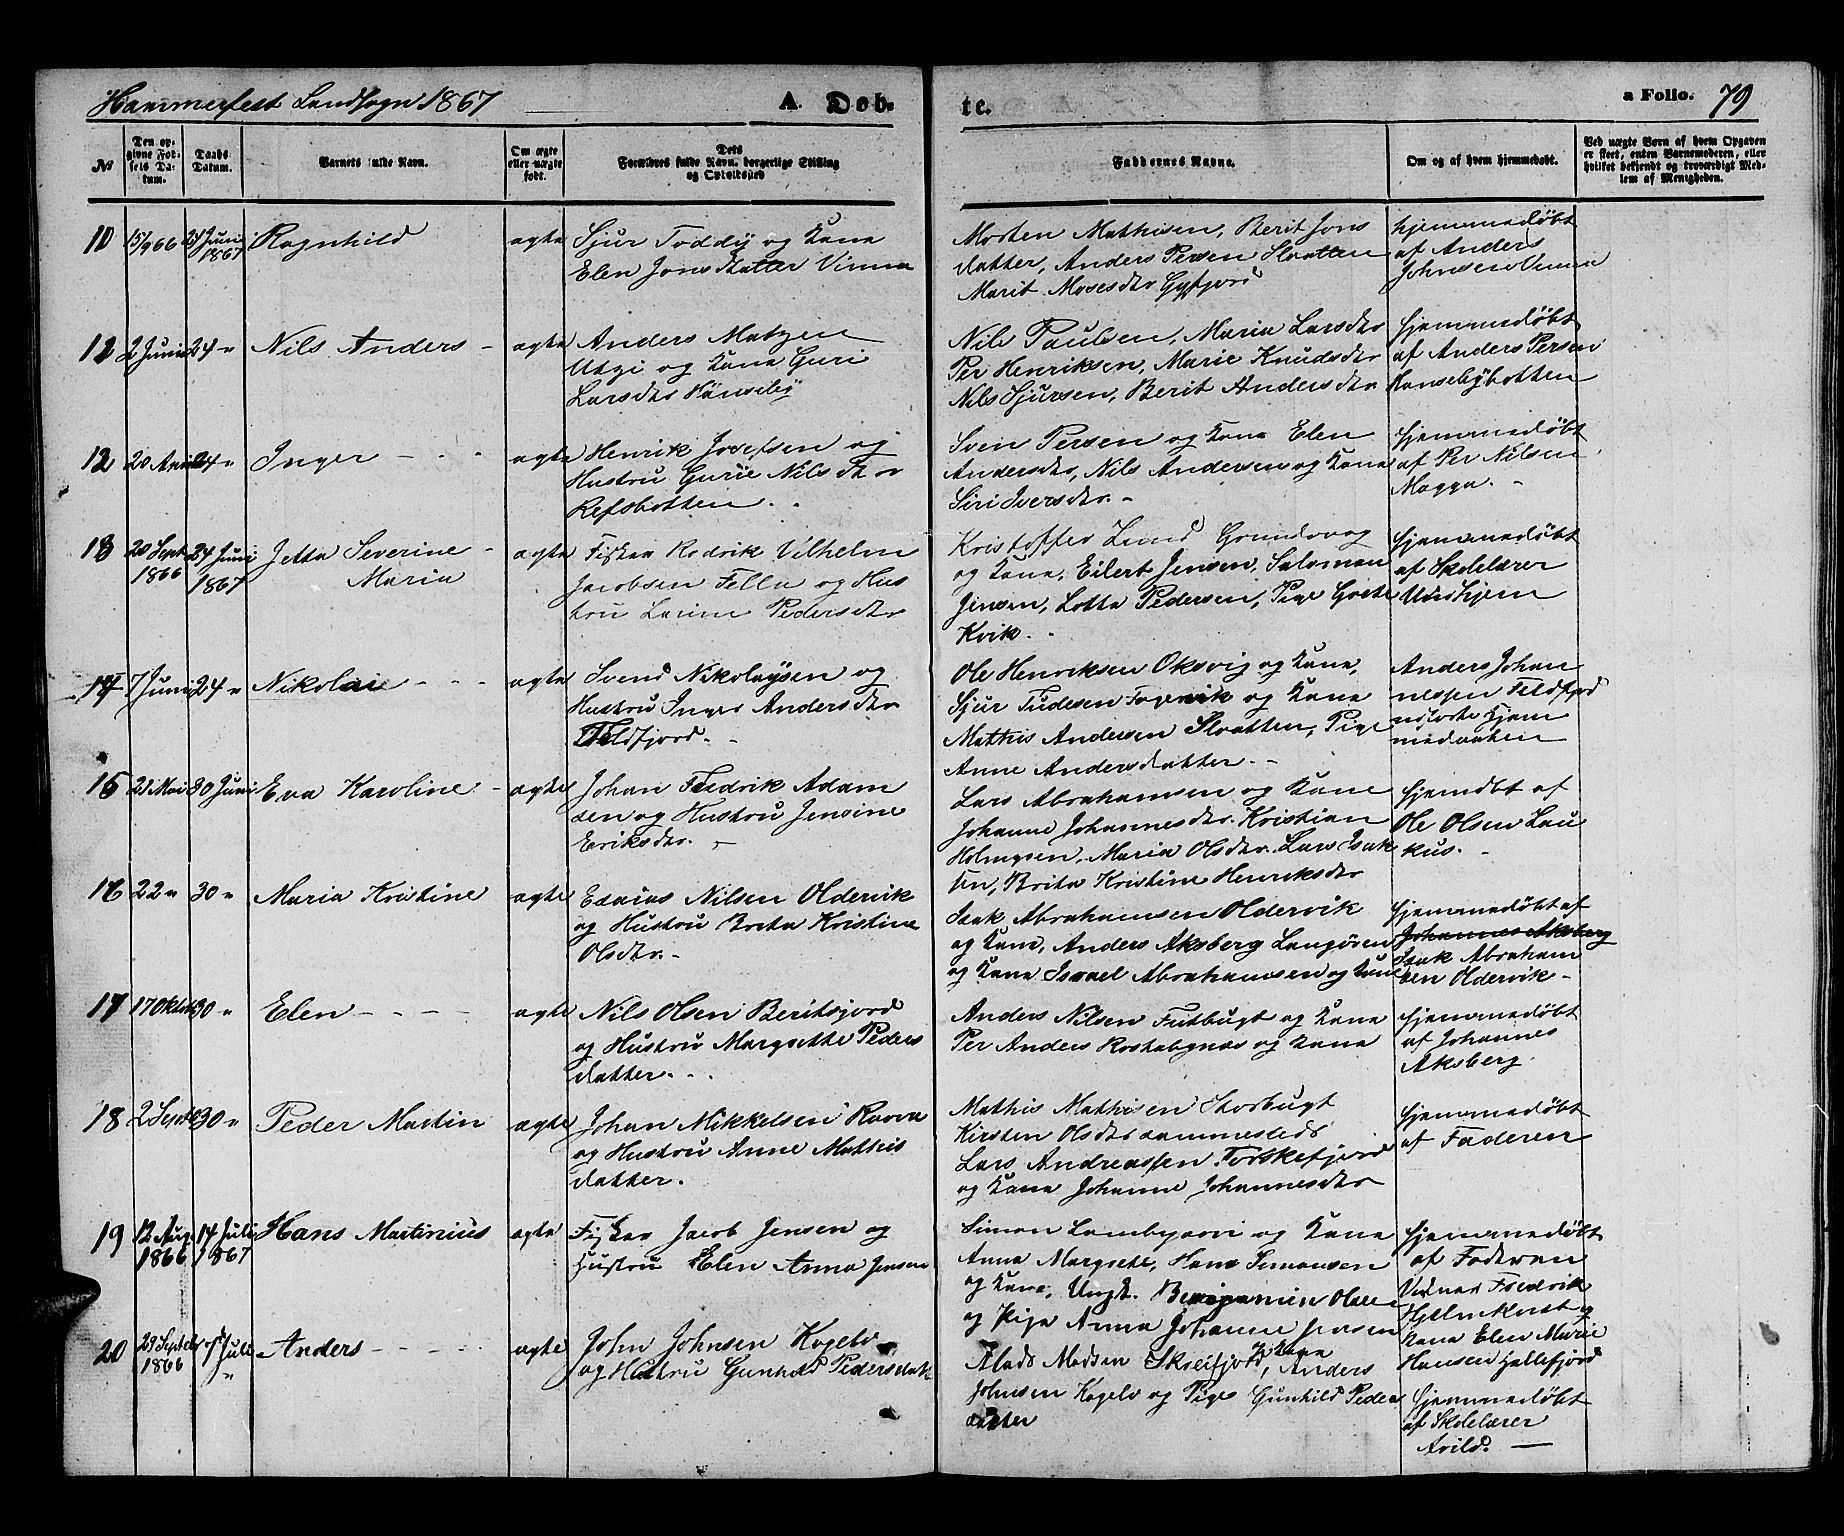 Hammerfest Landsogn 1867
A. Døb-
te.
a Folio. 79
No
Den op-
givne Fød-
sels Da-
tum.
Daabs
Datum.
Barnets fulde Navn.
Om ægte
eller uægte
født.
Dets
Forældres fulde Navn, borgerlige Stilling
og Opholdssted
Faddernes Navne.
Om og af hvem hjemmedøbt.
Ved uægte Børn af hvem Opgaven
er skeet, enten Barnemoderen, eller
hvilket bekjendt og troværdigt Med-
lem af Menigheden.
10 15/9 66 24 Juni 1867 Ragnhild
ægte
Sjur Toddy og Kone
Elen Jonsdatter Vinna
Morten Mathisen, Berit Jons
datter, Anders Persen Slaatten
Marit Mosesdtr
hjemmedøbt
af Anders
Johnsen Vinna
11 2 Juni 24 " Nils Anders -
ægte
Anders Matzen
Utzi og Kone Guri
Larsdtr
Nils Paulsen, Maria Larsdtr
Per Henriksen, Marie Knudsdtr
Nils Sjursen, Berit Andersdtr
hjemmedøbt
af Anders Persen
12 20 April 24 " Inger - - -
ægte
Henrik Josefsen og
Hustru Gurie Nilsdtr
Refsbotten
Sven Persen og Kone Elen
Andersdtr, Nils Andersen og Kone
Siri Iversdtr. -
hjemmedøbt
af Per Nilsen
Magga. -
13 20 Sept 1866 24 Juni 1867 Jetta Severine -
Maria
ægte
Fisker Rodrik Vilhelm
Jacobsen Fella og Hus
tru Pedersdtr
Kristoffer Lund
og Kone, Eilert Jensen, Salomon
Jensen, Lotta Pedersen, Pige
Kvik. -
hjemmedøbt
af Skolelærer
14 7 Juni 24 " Nikolai - - -
ægte
Svend Nikolaysen og
Hustru Inger Andersdtr
Ole Henriksen Oksvig og Kone,
Sjur og Kone
Mathis Andersen Slaatten, Pige
Anne Andersdatter. -
Anders Johan
nessen
hjem
medaaben
15 21 Mai 30 Juni Eva Karoline -
ægte
Johan Fredrik Adam
sen og Hustru Jensine
Eriksdtr. -
Lars Abrahamsen og Kone
Johanne Johannesdtr. Kristian
Maria Olsdtr. Lars Isak
sen, Brita Kristine Henriksdtr
hjemdbt af
Ole Olsen Lau
kus. -
16 22 " 30 " Maria Kristine
ægte
Esaias Nilsen Oldervik
og Hustru Brita Kristine
Olsdtr. -
Isak Abrahamsen Oldervik
og Kone, Anders Aksberg Langøren
og Kone Israel Abrahamsen og Kone
hjemmedøbt af
Johannes Aksberg
Isak Abraham
sen Oldervik -
17 17 Oktb 30 " Elen - - - -
ægte
Nils Olsen Beritsjord
og Hustru Margrethe Peders
datter. - -
Anders Nilsen Futbugt og Kone
Per Anders og Kone
hjemmedøbt
af Johannes
Aksberg
18 2 Septb 30 " Peder Martin
ægte
Johan Mikkelsen Ravna
og Hustru Anne Mathis
datter.
Mathis Mathisen Storbugt
Kirsten Olsdtr sammesteds
Lars Andreassen Torskefjord
og Kone Johanne Johannesdtr
hjemmedøbt
af Faderen
19 12 Aug 1866 14 Juli 1867 Hans Martinius
ægte
Fisker Jacob Jensen og
Hustru Elen Anna Jensen
Simon og Kone
Anna Margrete, Hans Simonsen
og Kone, Ungk. Benjamin Olsen
og Pige Anna Johanne Jensen
hjemmedøbt
af Faderen
Vidner Fredrik
og
Kone Elen Marie
Hansen Hallefjord
20 29 Septb 1866 Juli " Anders - - - -
ægte
John Johnsen Kogelv
og Hustru Gunhild Pedersdatt
Mads Madsen Skreifjord, og Kone Anders
Johnsen Kogelv og Pige Gunhild Peders
datter
hjemmedøbt
af Skolelærer
Arild. -